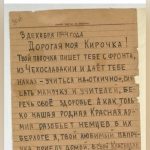 3 ДЕКАБРЯ 1944 ГОДА
ДОРОГАЯ МОЯ КИРОЧКА!
ТВОЙ ПАПОЧКА ПИШЕТ ТЕБЕ С ФРОНТА,
ИЗ ЧЕХОСЛОВАКИИ И ДАЁТ ТЕБЕ
НАКАЗ - УЧИТЬСЯ НА "ОТЛИЧНО",
МАМОЧКУ И УЧИТЕЛЕЙ, БЕ-
РЕЧЬ СВОЁ ЗДОРОВЬЕ. А КАК ТОЛЬ-
КО НАША РОДНАЯ КРАСНАЯ АР-
МИЯ РАЗОБЬЁТ НЕМЦЕВ В ИХ
БЕРЛОГЕ Я, ТВОЙ ЛЮБИМЫЙ ПАПОЧ-
КА, ПРИЕДУ ДОМОЙ. КРАСНОЙ